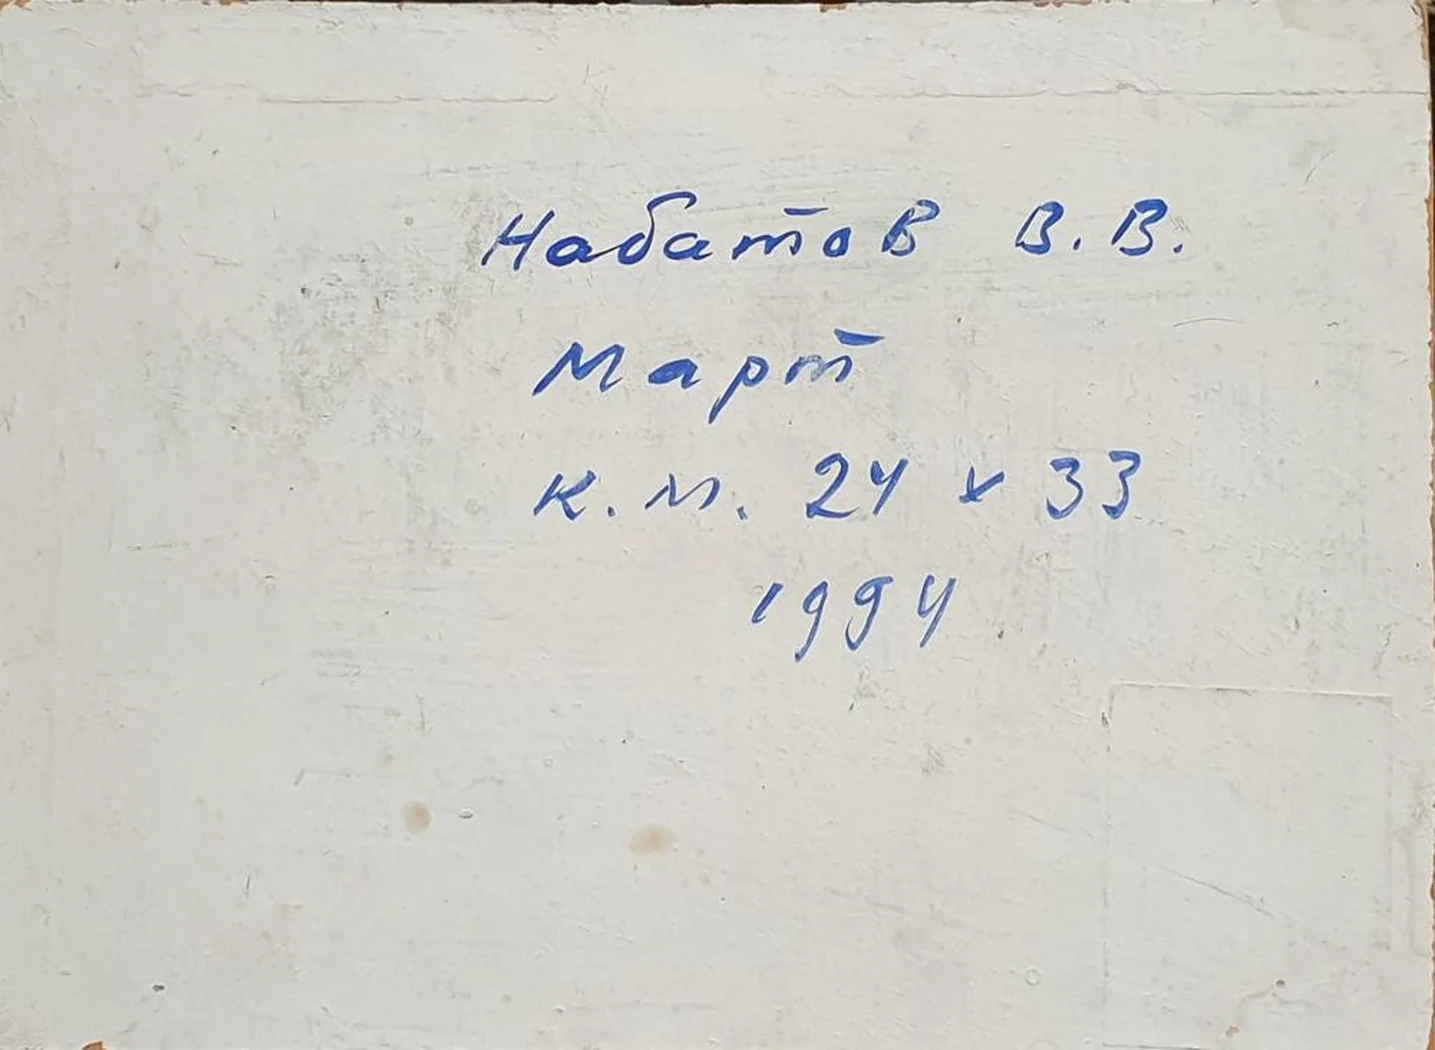 Набатов В.В.
Март
к.м. 24 x 33
1994